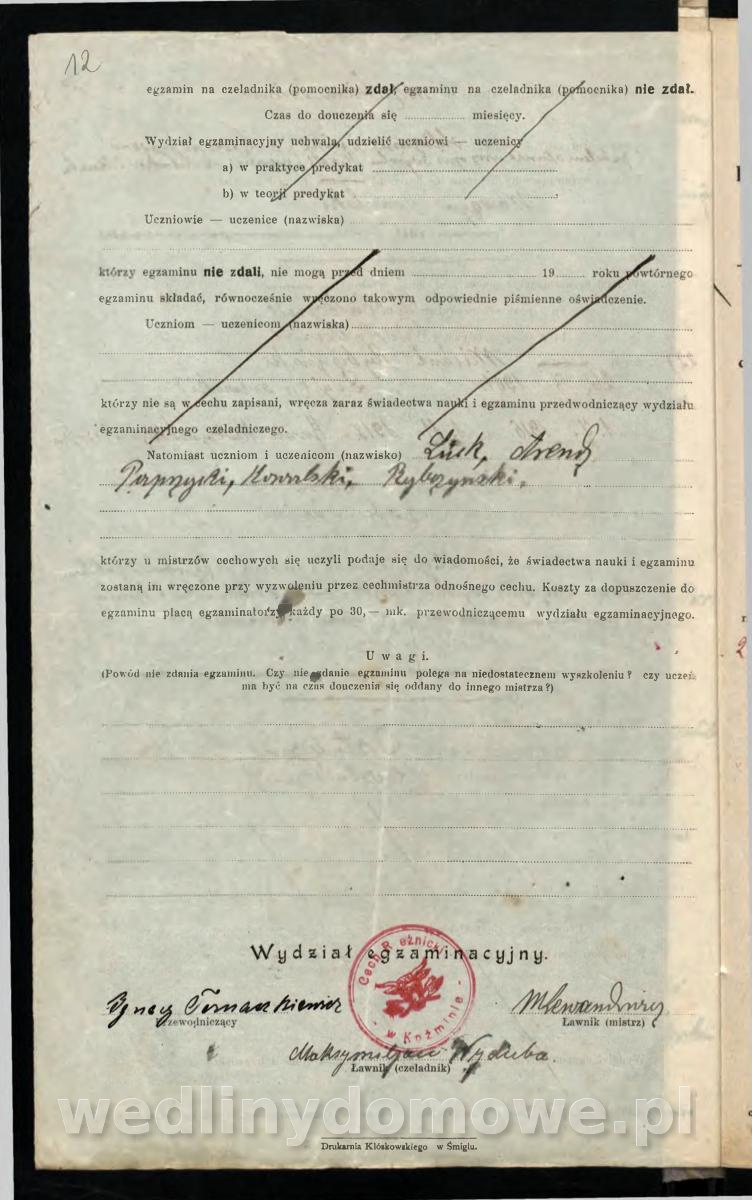 12
egzamin na czeladnika (pomocnika) zdał, egzaminu na czeladnika (pomocnika) nie zdał.
Czas do douczenia się .................. miesięcy.
Wydział egzaminacyjny uchwala, udzielić uczniowi — uczenicy
a) w praktyce predykat
b) w teorji predykat
Uczniowie — uczenice (nazwiska)
którzy egzaminu nie zdali, nie mogą przed dniem .................. 19........ roku powtórnego
egzaminu składać, równocześnie wręczono takowym odpowiednie piśmienne oświadczenie.
Uczniom — uczenicom (nazwiska)
którzy nie są w cechu zapisani, wręcza zaraz świadectwa nauki i egzaminu przedwodniczący wydziału
egzaminacyjnego czeladniczego.
Natomiast uczniom i uczenicom (nazwisko) Lück, Arend,
Kowalski, Rybczynski.
którzy u mistrzów cechowych się uczyli podaje się do wiadomości, że świadectwa nauki i egzaminu
zostaną im wręczone przy wyzwoleniu przez cechmistrza odnośnego cechu. Koszty za dopuszczenie do
egzaminu płacą egzaminatorzy każdy po 30,— mk. przewodniczącemu wydziału egzaminacyjnego.
Uwagi.
(Powód nie zdania egzaminu. Czy nie zdanie egzaminu polega na niedostatecznem wyszkoleniu? czy uczeń
ma być na czas douczenia się oddany do innego mistrza?)
Wydział egzaminacyjny.
Cech Rzeźnicki w Koźminie
Ignacy Tomaszkiewicz
Przewodniczący
MLewandowicz
Ławnik (mistrz)
Maksymiljan Wyduba.
Ławnik (czeladnik)
wedlinydomowe.pl
Drukarnia Klóskowskiego w Śmiglu.